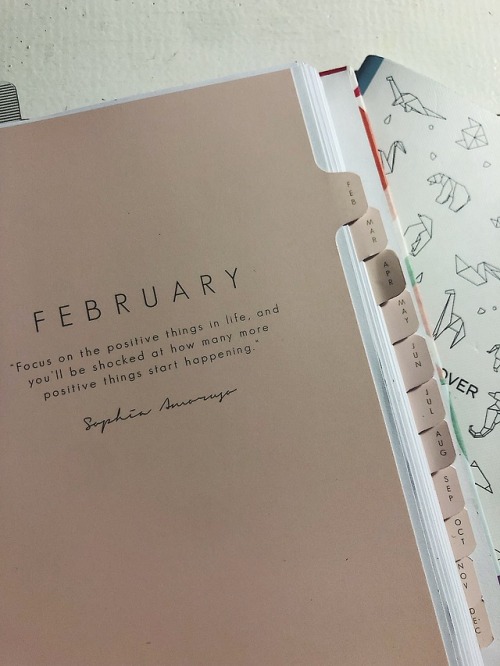 FEBRUARY
"Focus on the positive things in life, and
you'll be shocked at how many more
positive things start happening."
Sophia Amoruso
FEB
MAR
APR
MAY
JUN
JUL
AUG
SEP
OCT
NOV
DEC
OVER